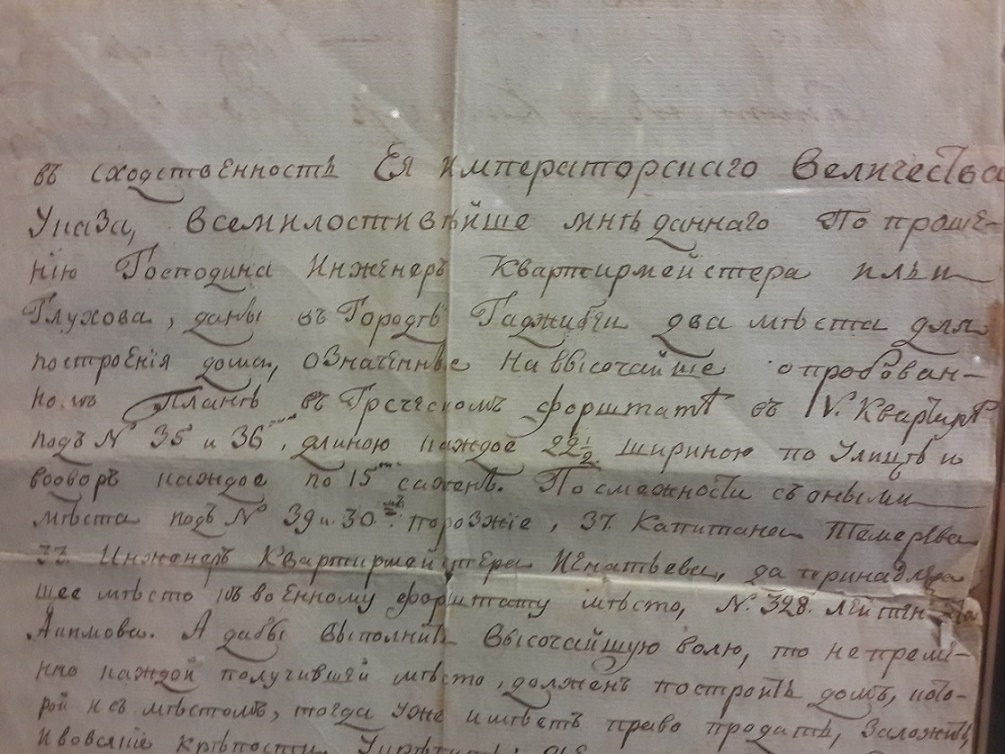 въ сходственность Ея императорскаго Величества
Указа, Всемилостивѣйше мнѣ даннаго По проше-
нію Господина Инженеръ Квартирмейстера
Глухова, даны въ Городѣ Гаджибѣи два мѣста для
построенія дома, означенные На высочайше опробован-
номъ Планѣ въ Греческомъ форштатѣ въ IV. Квартирѣ
подъ № 35 и 36, длиною каждое 22 1/2 шириною по Улицѣ и
водворъ каждое по 15 саженъ. По смежности съ оными
мѣста подъ № 39 и 30 порозжіе, 37. Капитана
33. Инженеръ Квартирмейстера Игнатьева, да принадлежа
щее мѣсто къ военному форштату мѣсто, №. 328. Лейтен-та
Акимова. А дабы выполнить высочайшую волю, то непремѣ-
нно каждой получившей мѣсто, долженъ построить домъ, кото-
рой и съ мѣстомъ, тогда уже имѣетъ право продать, Заложить
крѣпости